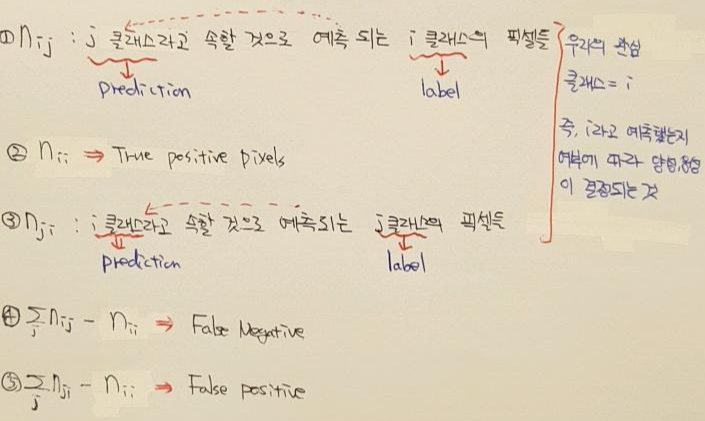 ① nij : j 클래스라고 속할 것으로 예측 되는 i 클래스의 픽셀들
prediction label
우리의 관심
클래스 = i
즉, i라고 예측했는지
여부에 따라 양성,음성
이 결정되는 것
② nii ⇒ True positive pixels
③ nji : i 클래스라고 속할 것으로 예측되는 j클래스의 픽셀들
prediction label
④ ∑j nij - nii ⇒ False Negative
⑤ ∑j nji - nii ⇒ False positive